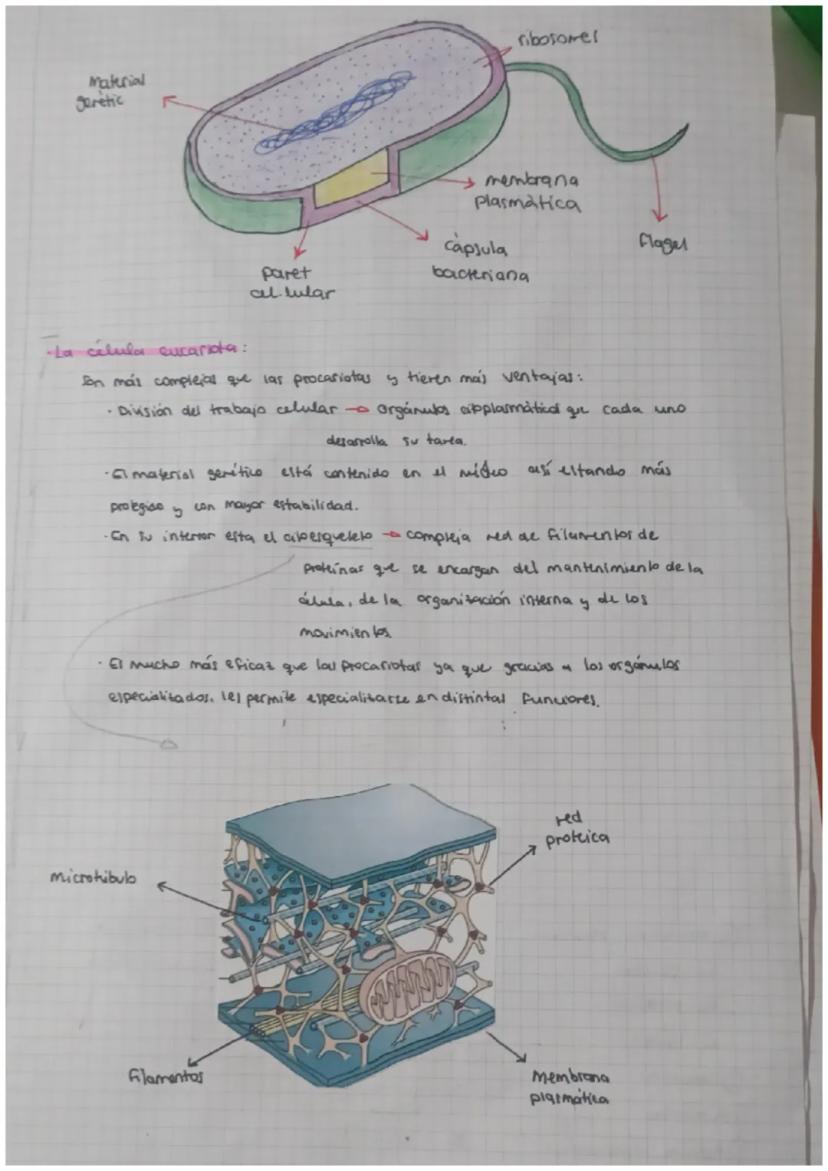 ribosomes
Material
genètic
membrana
plasmàtica
flagel
càpsula
bacteriana
paret
cel·lular
·La célula eucariota:
Son más complejas que las procariotas y tienen más ventajas:
· División del trabajo celular → orgánulos citoplasmáticos que cada uno
desarrolla su tarea.
· El material genético está contenido en el núcleo así estando más
protegido y con mayor estabilidad.
· En su interior esta el citoesqueleto → compleja red de filamentos de
proteínas que se encargan del mantenimiento de la
célula, de la organización interna y de los
movimientos.
· Es mucho más eficaz que las procariotas ya que gracias a los orgánulos
especializados, les permite especializarse en distintas funciones.
red
proteica
microtúbulo
filamentos
Membrana
plasmática